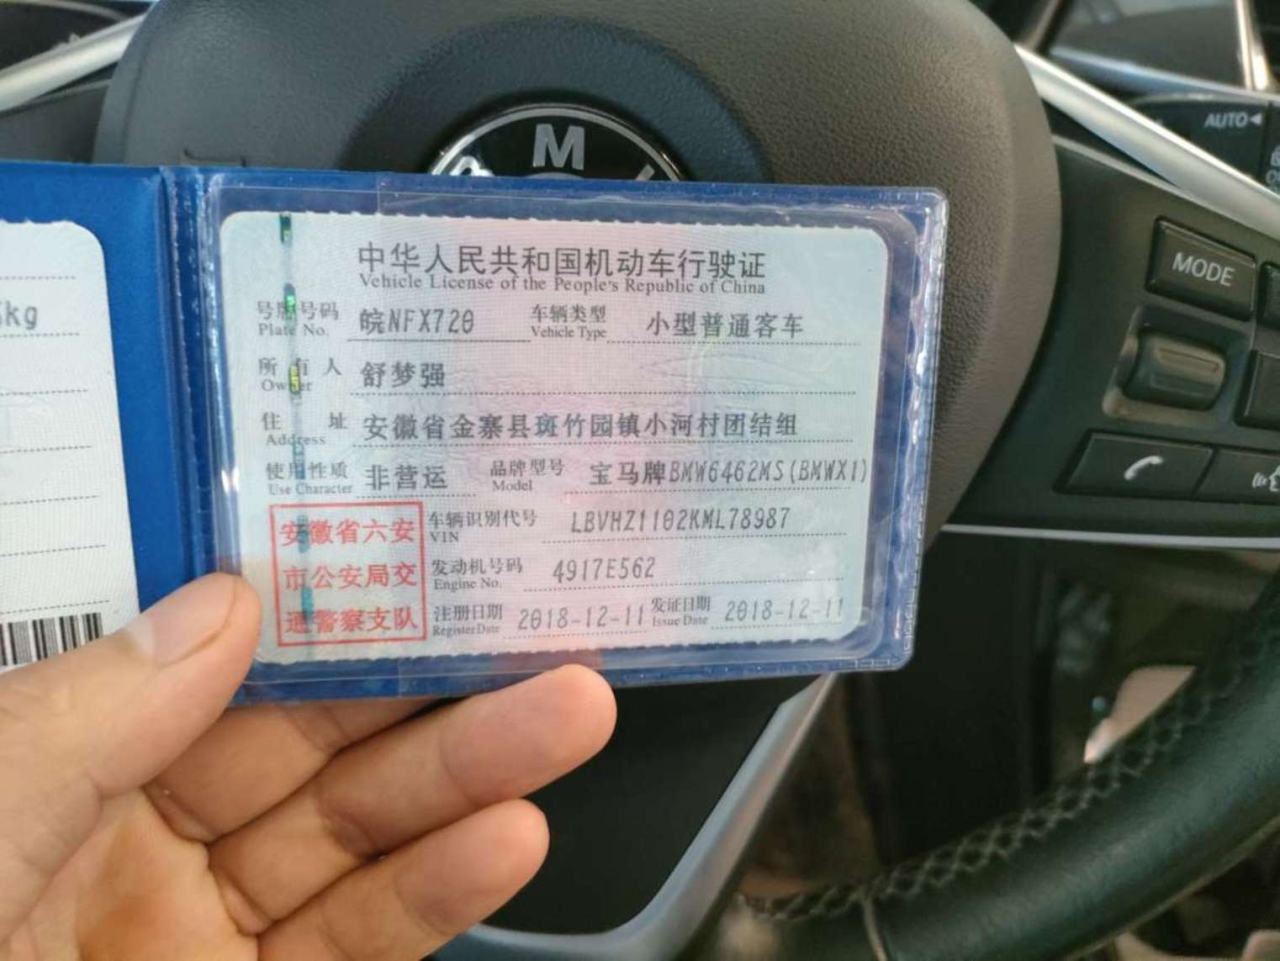 kg
中华人民共和国机动车行驶证
Vehicle License of the People's Republic of China
号牌号码 皖NFX720 车辆类型 小型普通客车
Plate No. Vehicle Type
所有人 舒梦强
Owner
住址 安徽省金寨县斑竹园镇小河村团结组
Address
使用性质 非营运 品牌型号 宝马牌BMW6462MS(BMWX1)
Use Character Model
安徽省六安
市公安局交
通警察支队
车辆识别代号 LBVHZ1102KML78987
VIN
发动机号码 4917E562
Engine No.
注册日期 2018-12-11 发证日期 2018-12-11
Register Date Issue Date
M
AUTO
MODE